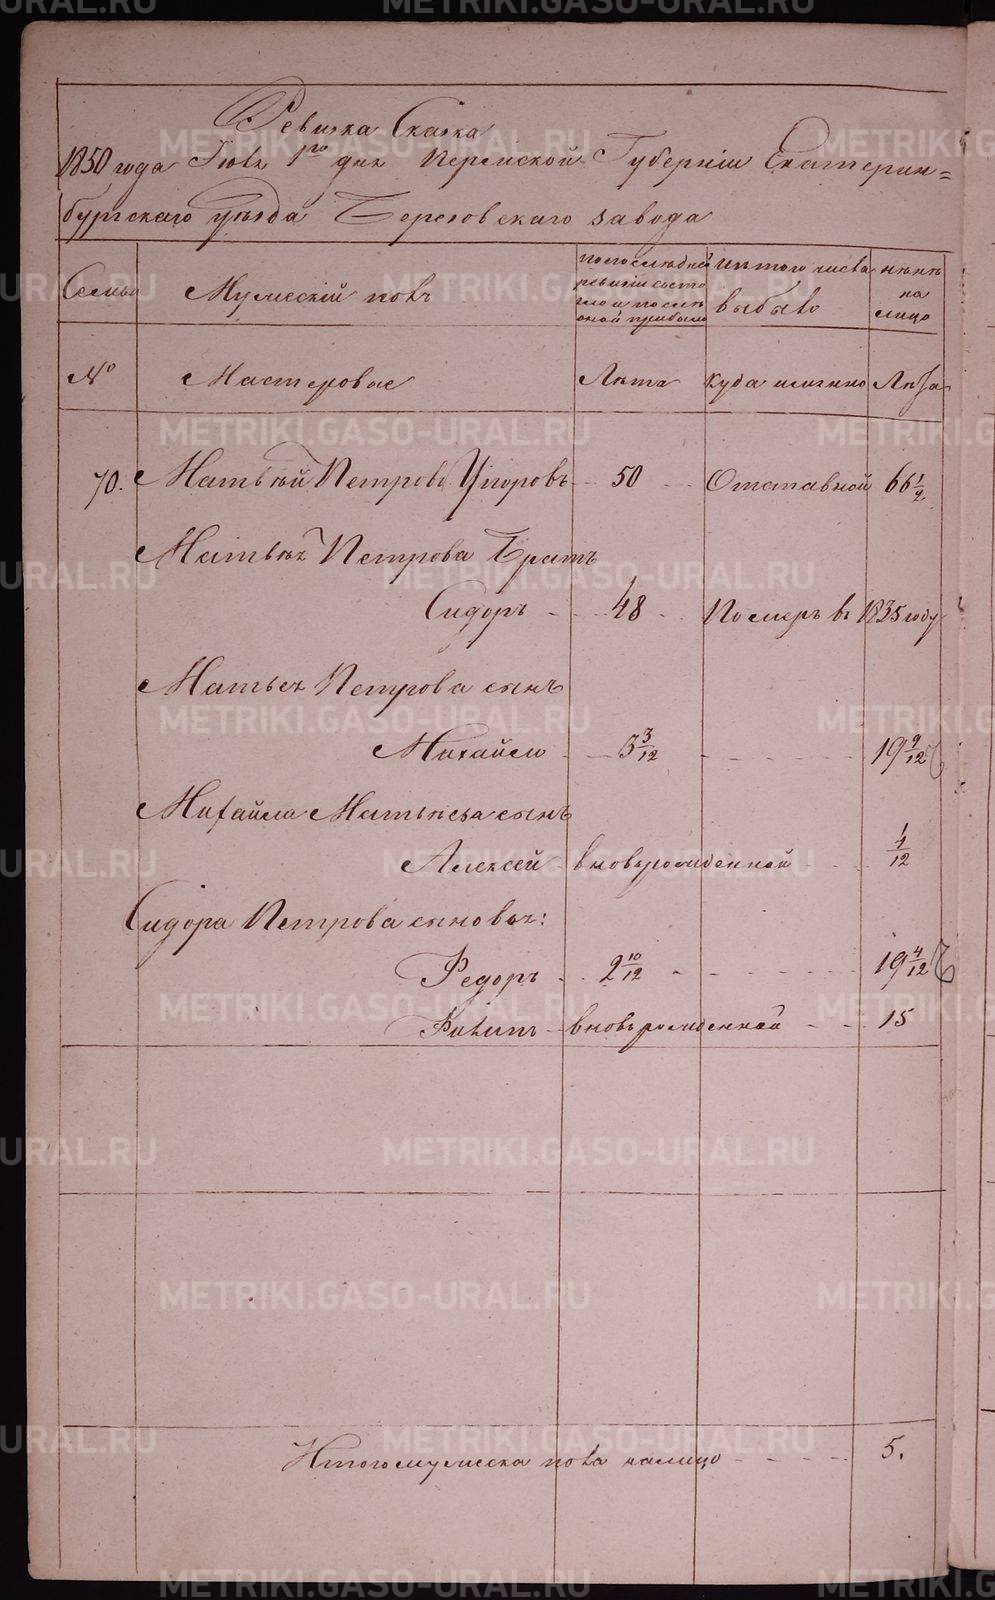 Ревизка Сказка
1850 года Іюля 1го дня Пермской Губерніи Екатерин=
бургскаго уѣзда Березовскаго завода
Семьи Мужескій полъ по последней ревизіи состояло и после оной прибыло из того числа выбыло нынѣ на лицо
№ Мастеровые Лѣта куда именно Лѣта
70. Матвѣй Петровъ Угоровъ 50 Отставной 66 1/2.
Матвѣя Петрова Братъ
Сидоръ 48 Померъ въ 1835 году
Матвея Петрова сынъ
Михайло 3 3/12 19 9/12
Михайла Матвѣева сынъ
Алексей вновьрожденной 4/12
Сидора Петрова сыновья:
Федоръ 2 10/12 19 4/12
вновьрожденной 15
Итого мужеска пола налицо 5.
METRIKI.GASO-URAL.RU